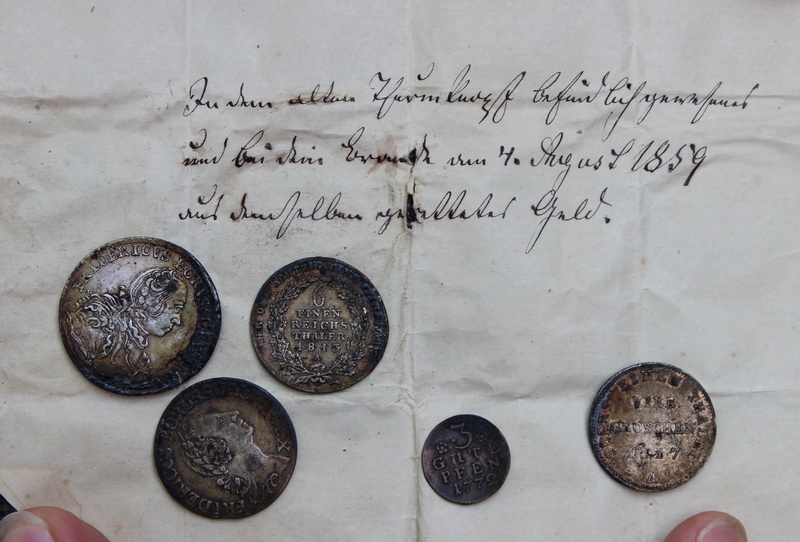 In dem alten Thurmknopf befindlich gewesenes
und bei dem Brande am 4. August 1859
aus demselben gerettetes Geld.
FRIDERICUS BORUSS
6
EINEN
REICHS
THALER
1813
A
FRIDERICUS
3
GUT
PFEN
1779
VIER
GROSCHEN
A